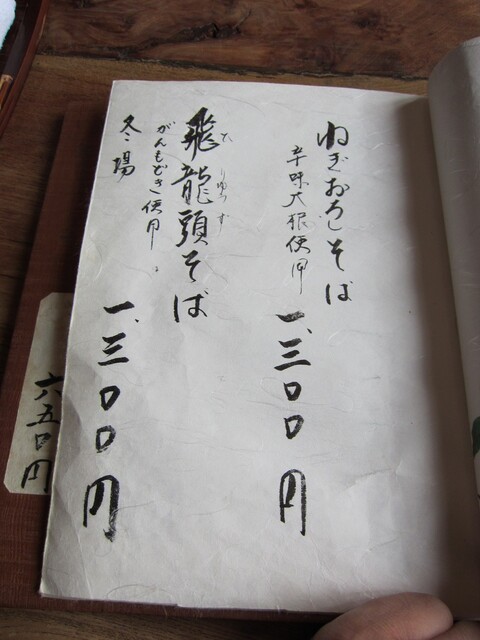 ねぎおろしそば
辛味大根使用
一、三〇〇円
飛龍頭そば
ひりゅうず
がんもどき使用
冬場
一、三〇〇円
六五〇円